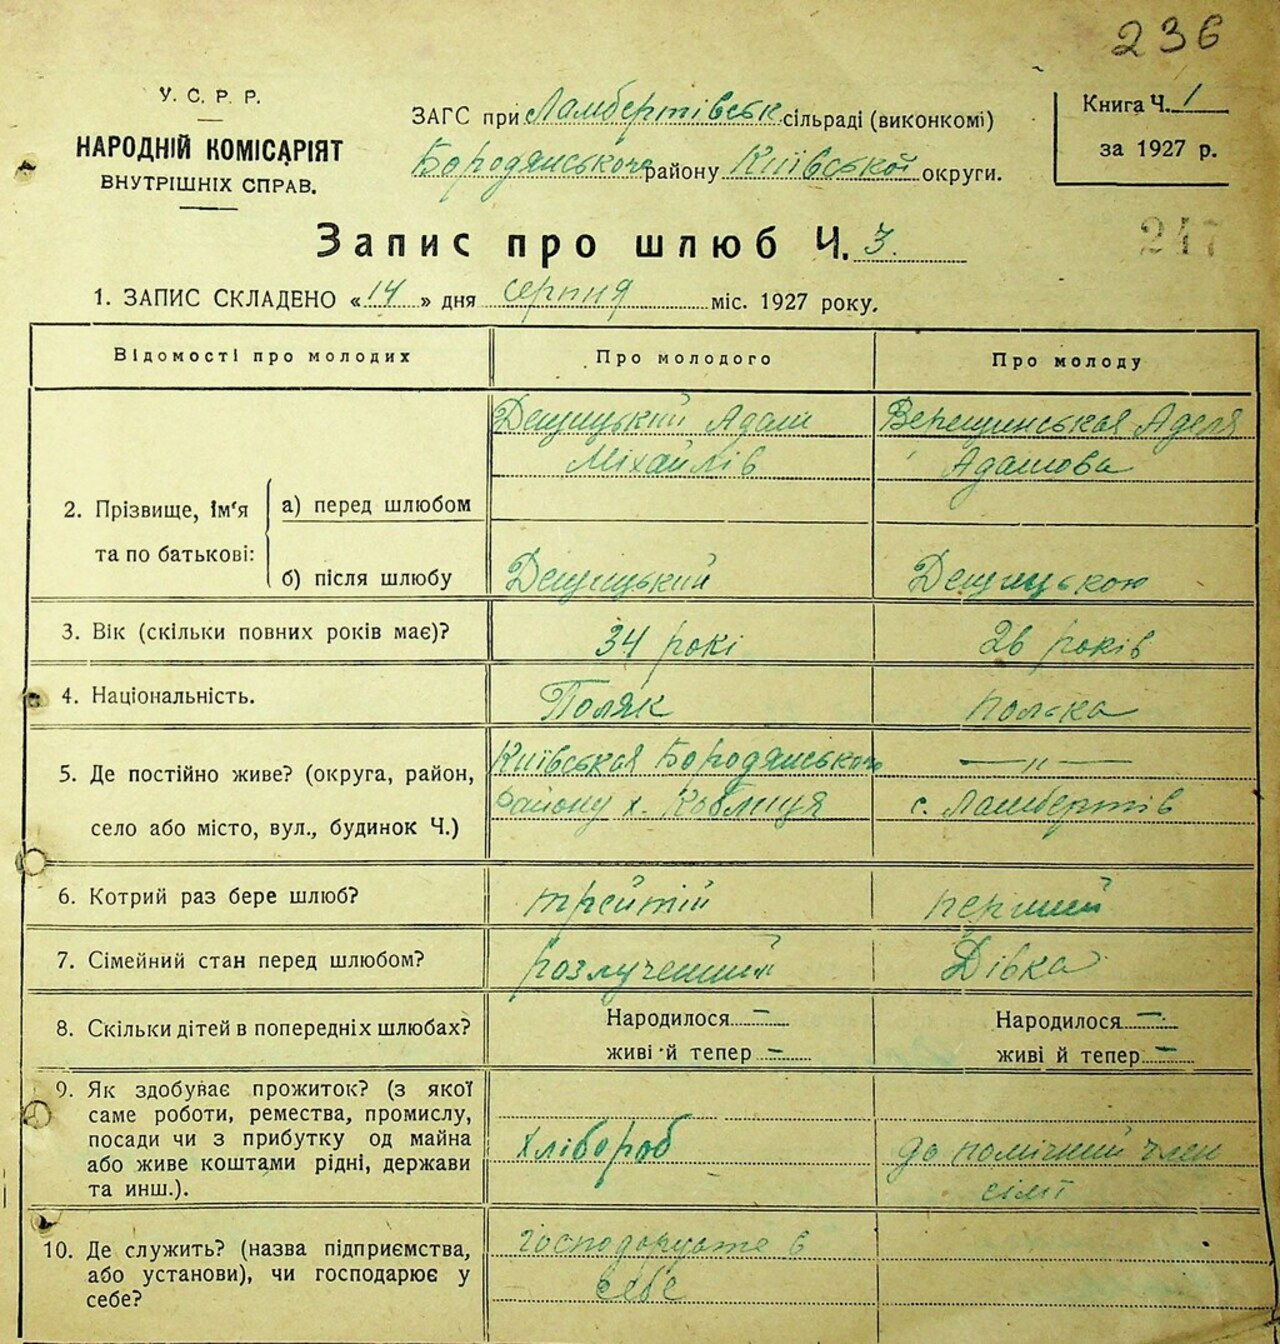 236
У. С. Р. Р.
НАРОДНІЙ КОМІСАРІЯТ
ВНУТРІШНІХ СПРАВ.
ЗАГС при Ламбертівськ. сільраді (виконкомі)
Бородянського району Київської округи.
Книга Ч. 1
за 1927 р.
247
Запис про шлюб Ч. 3.
1. ЗАПИС СКЛАДЕНО « 14 » дня серпня міс. 1927 року.
Відомості про молодих
Про молодого
Про молоду
2. Прізвище, ім'я
та по батькові:
а) перед шлюбом
Дещицький Адам
Міхайлів
Верещинськая Аделя
Адамова
б) після шлюбу
Дещицький
Дещицькою
3. Вік (скільки повних років має)?
34 рокі
26 років
4. Національність.
Поляк
полька
5. Де постійно живе? (округа, район,
село або місто, вул., будинок Ч.)
Київськая Бородянського
району х. Коблиця
— „ —
с. Ламбертів
6. Котрий раз бере шлюб?
трейтій
перший
7. Сімейний стан перед шлюбом?
розлученний
Дівка
8. Скільки дітей в попередніх шлюбах?
Народилося —
живі й тепер —
Народилося —
живі й тепер —
9. Як здобуває прожиток? (з якої
саме роботи, ремества, промислу,
посади чи з прибутку од майна
або живе коштами рідні, держави
та инш.).
хлібороб
до помічний член
сімї
10. Де служить? (назва підприємства,
або установи), чи господарює у
себе?
господарує в
себе